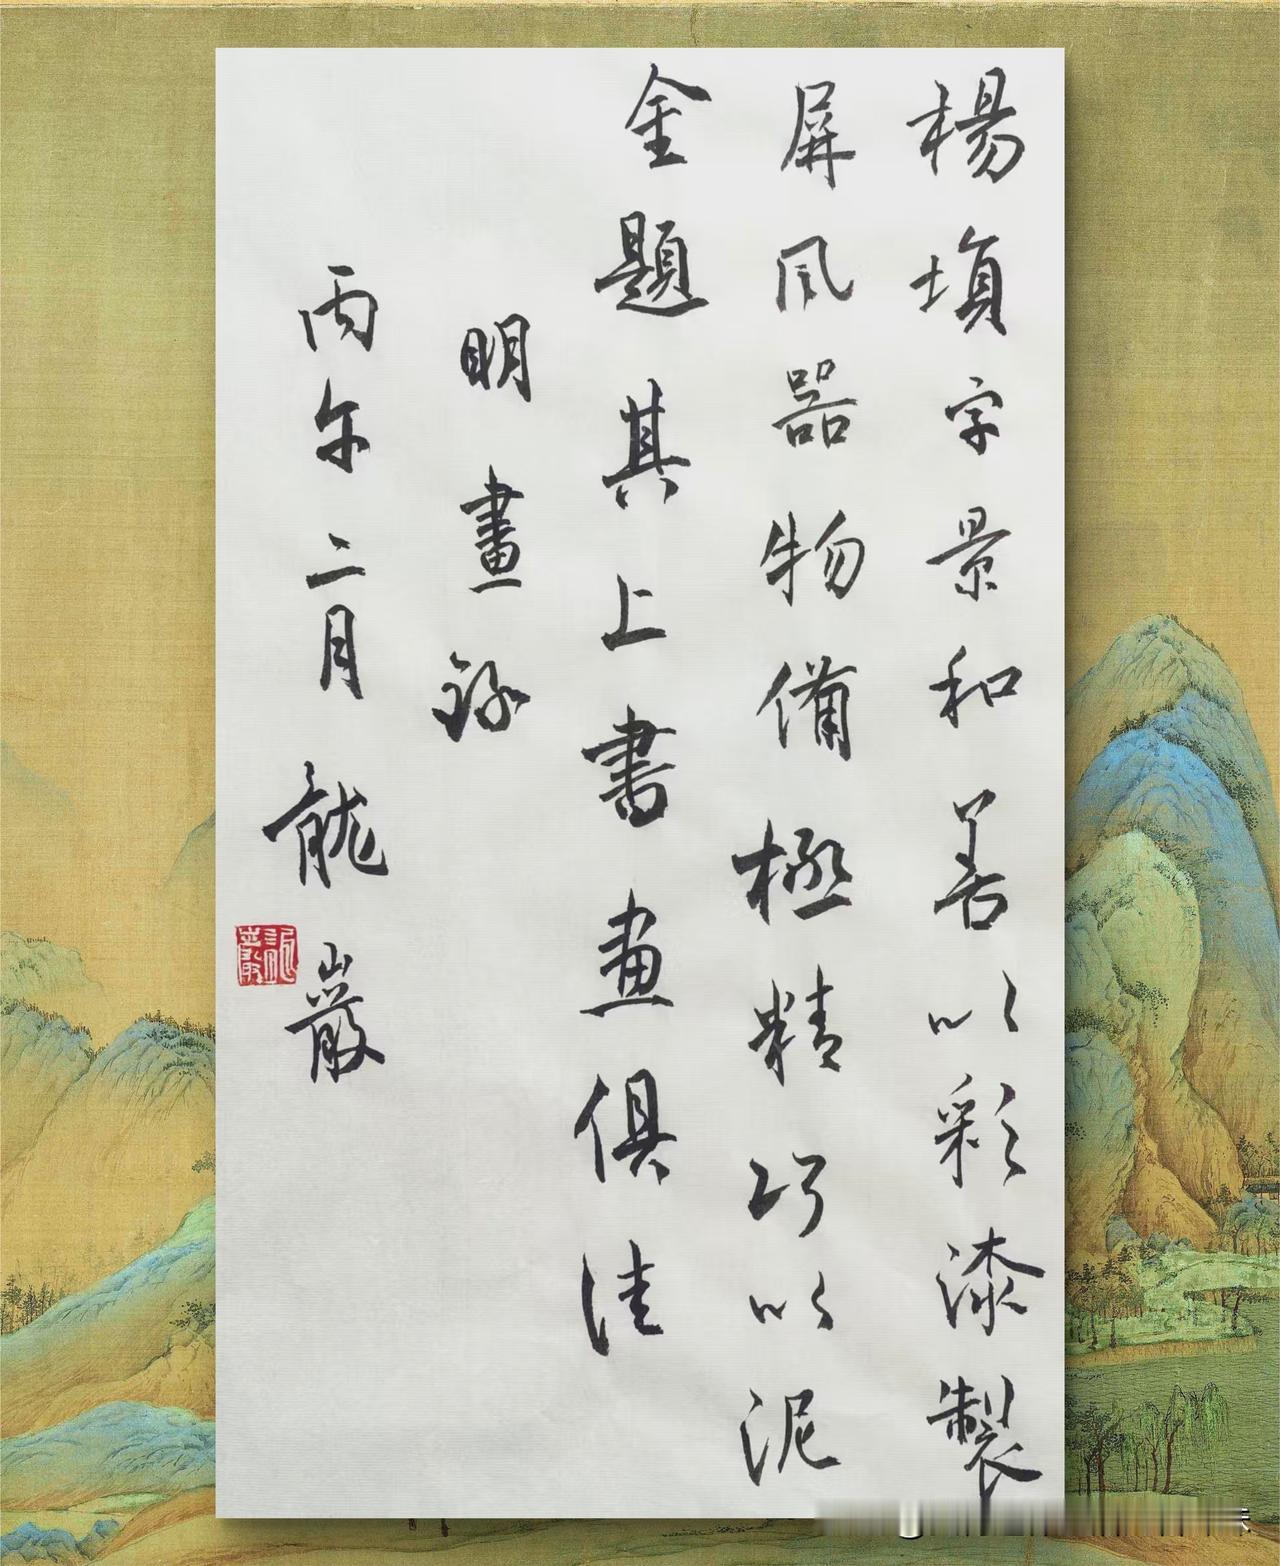 楊塤字景和善以彩漆製
屏風器物備極精巧以泥
金題其上書畫俱佳
明畫錄
丙午二月龍巖
龍巖